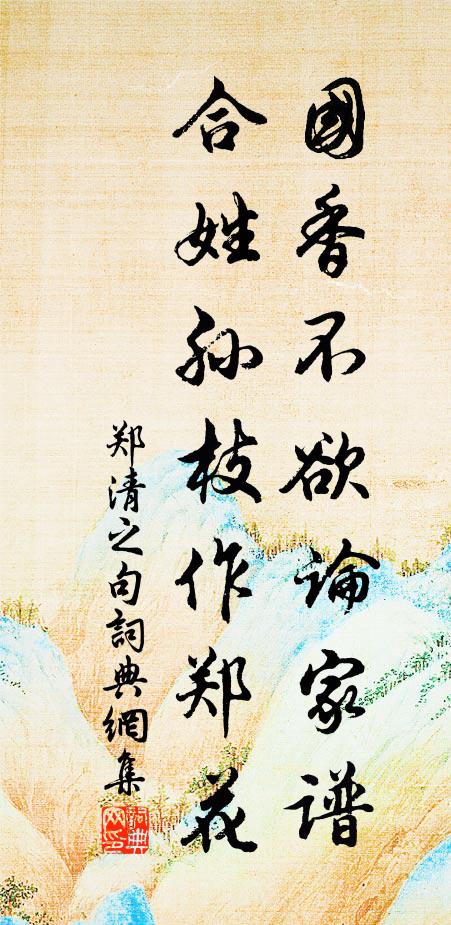 國香不欲論家谱
合姓孙枝作郑花
郑清之句詞典網集
詞典